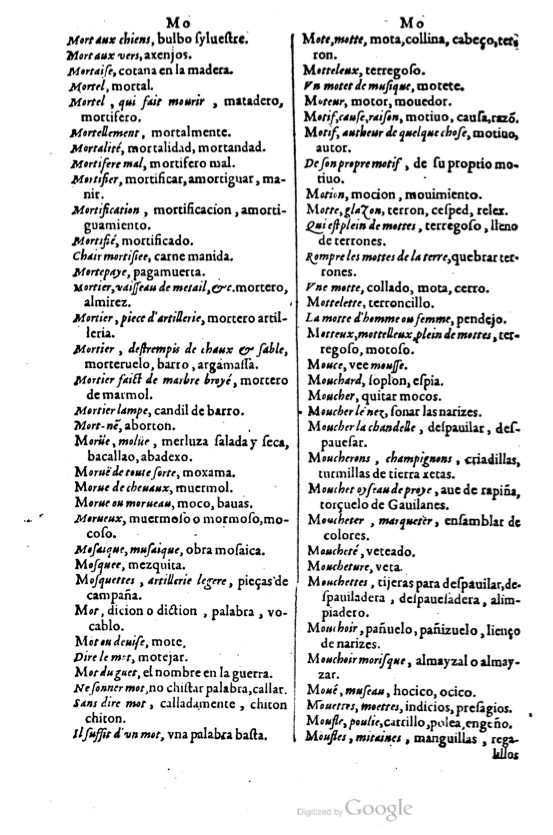 Mo
Mort aux chiens, bulbo sylueſtre.
Mort aux vers, axenjos.
Mortaiſe, cotana en la madera.
Mortel, mortal.
Mortel, qui fait mourir, matadero,
mortifero.
Mortellement, mortalmente.
Mortalité, mortalidad, mortandad.
Mortifere mal, mortifero mal.
Mortifier, mortificar, amortiguar, ma-
nir.
Mortification, mortificacion, amorti-
guamiento.
Mortifié, mortificado.
Chair mortifiee, carne manida.
Mortepaye, pagamuerta.
Mortier, vaiſſeau de metail, &c. mortero,
almirez.
Mortier, piece d'artillerie, mortero artil-
leria.
Mortier, deſtrempis de chaux & ſable,
morteruelo, barro, argamaſſa.
Mortier faict de marbre broyé, mortero
de marmol.
Mortier lampe, candil de barro.
Mort-né, aborton.
Morüe, molüe, merluza ſalada y ſeca,
bacallao, abadexo.
Moruë de toute ſorte, moxama.
Morue de cheuaux, muermol.
Morue ou morueau, moco, bauas.
Morueux, muermoſo o mormoſo, mo-
coſo.
Moſaique, muſaique, obra moſaica.
Moſquee, mezquita.
Moſquettes, artillerie legere, pieças de
campaña.
Mot, dicion o diction, palabra, vo-
cablo.
Mot ou deuiſe, mote.
Dire le mot, motejar.
Mot du guet, el nombre en la guerra.
Ne ſonner mot, no chiſtar palabra, callar.
Sans dire mot, calladamente, chiton
chiton.
Il ſuffit d'un mot, vna palabra baſta.
Mo
Mote, motte, mota, collina, cabeço, ter-
ron.
Motteleux, terregoſo.
Vn motet de muſique, motete.
Moteur, motor, mouedor.
Motif, cauſe, raiſon, motiuo, cauſa, razõ.
Motif, autheur de quelque choſe, motiuo,
autor.
De ſon propre motif, de ſu proptio mo-
tiuo.
Motion, mocion, mouimiento.
Motte, glazon, terron, ceſped, relex.
Qui eſt plein de mottes, terregoſo, lleno
de terrones.
Rompre les mottes de la terre, quebrar ter-
rones.
Vne motte, collado, mota, cerro.
Mottelette, terroncillo.
La motte d'homme ou femme, pendejo.
Motteux, mottelleux, plein de mottes, ter-
regoſo, motoſo.
Mouce, vee mouſſe.
Mouchard, ſoplon, eſpia.
Moucher, quitar mocos.
Moucher le nez, ſonar las narizes.
Moucher la chandelle, deſpauilar, deſ-
paueſar.
Moucherons, champignons, criadillas,
turmillas de tierra xetas.
Mouchet oyſeau de proye, aue de rapiña,
torçuelo de Gauilanes.
Moucheter, marqueter, enſamblar de
colores.
Moucheté, veteado.
Moucheture, veta.
Mouchettes, tijeras para deſpauilar, de-
ſpauiladera, deſpaueſadera, alim-
piadero.
Mouchoir, pañuelo, pañizuelo, lienço
de narizes.
Mouchoir moriſque, almayzal o almay-
zar.
Mouë, muſeau, hocico, ocico.
Mouettes, moettes, indicios, preſagios.
Moufle, poulie, carrillo, polea, engeño.
Moufles, mitaines, manguillas, rega-
lillos
Digitized by Google